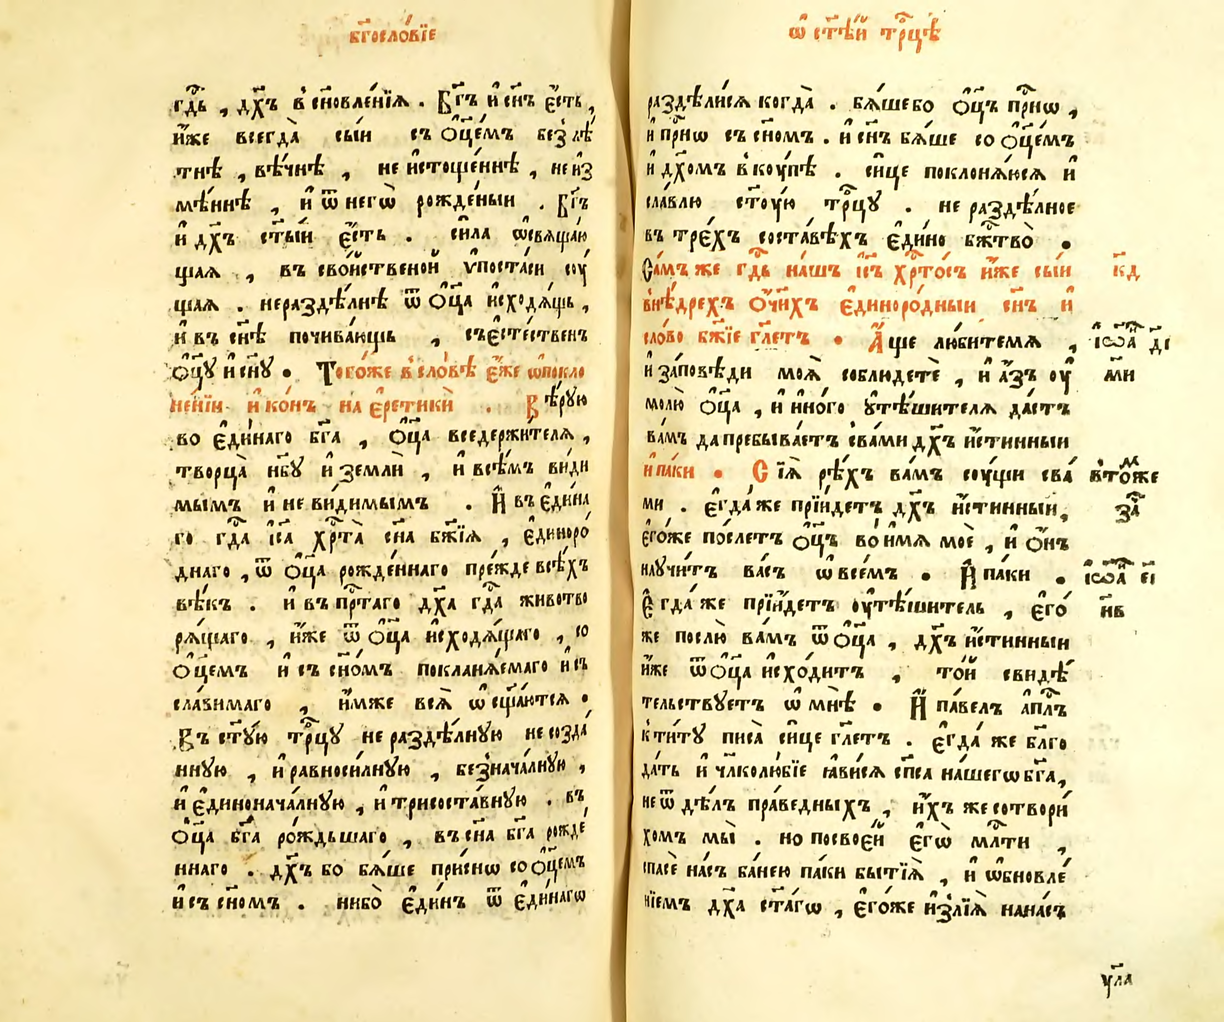 бг҃ослѡ́вїе
гдⷭ҇ь , дх҃ъ в҆ сн҃овле́нїѧ . Бг҃ъ и҆ сн҃ъ є҆́сть ,
и҆́же всегда̀ сы́и съ ѻ҆ц҃е́мъ без̾ лѣ́
тнѣ , вѣ́чнѣ , не и҆стоще́ннѣ , не и҆з
мѣ́ннѣ , и҆ ѿ негѡ̀ рожде́ныи . Бг҃ъ
и҆ дх҃ъ ст҃ы́и є҆́сть . си́ла ѡ҆свѧща́ю
щаѧ , въ сво́йственой ѵ҆поста́си сꙋ́
щаѧ . нераздѣ́лнѣ ѿ ѻ҆ц҃а̀ и҆сходѧ́щь ,
и҆ въ сн҃ѣ почива́ющь , съесте́ственъ
ѻ҆ц҃ꙋ̀ и҆ сн҃ꙋ . Тогѡ́же в҆ сло́вѣ є҆́же ѡ҆ покло
не́нїи и҆ ко́нъ на є҆ретики̑ . Вѣ́рꙋю
во є҆ди́наго бг҃а , ѻ҆ц҃а̀ вседержи́телѧ ,
творца̀ нб҃ꙋ и҆ землѝ , и҆ всѣ́мъ ви́ди
мымъ и҆ не ви́димымъ . И҆ въ є҆ди́на
го гдⷭ҇а і҆с҃а хрⷭ҇та̀ сн҃а бж҃їѧ , є҆диноро́
днаго , ѿ ѻ҆ц҃а̀ рожде́ннаго пре́жде всѣ́хъ
вѣ́къ . и҆ въ прⷭ҇таго дх҃а гдⷭ҇а животво
рѧ́щаго , и҆́же ѿ ѻ҆ц҃а̀ и҆сходѧ́щаго , со
ѻ҆ц҃емъ и҆ съ сн҃о́мъ покланѧ́емаго и҆ съ
сла́вимаго , и҆́мже всѧ̀ ѡ҆сщ҃а́ютсѧ .
Въ ст҃ꙋ́ю трⷪ҇цꙋ не раздѣ́лнꙋю не созда́
ннꙋю , и҆ равноси́лнꙋю , без̾нача́лнꙋю ,
и҆ є҆диноначалнꙋю , и҆ трисоста́внꙋю . въ
ѻ҆ц҃а бг҃а ро́ждьшаго , въ сн҃а бг҃а рожде́
ннаго . дх҃ъ бо бѧ́ше при́снѡ со ѻ҆ц҃е́мъ
и҆ съ сн҃о́мъ . нибо̀ є҆ди́нъ ѿ є҆ди́нагѡ
ѡ҆ ст҃ѣ́й трⷪ҇цѣ
раздѣли́сѧ когда̀ . бѧ́ше бо ѻ҆ц҃ъ прⷭ҇нѡ ,
и҆ прⷭ҇нѡ съ сн҃омъ . и҆ сн҃ъ бѧ́ше со ѻ҆ц҃е́мъ
и҆ дх҃омъ в҆кꙋ́пѣ . си́це поклонѧ́юсѧ и҆
сла́влю ст҃ꙋ́ю трⷪ҇цꙋ . не раздѣ́лное
въ тре́хъ соста́вѣхъ є҆ди́но бжⷭ҇тво̀ .
Са́мъ же гдⷭ҇ь на́шъ і҆с҃ъ хрⷭ҇то́съ и҆́же сы́и
в҆нѣ́дрехъ ѻ҆́ч҃ихъ є҆диноро́дныи сн҃ъ и҆
сло́во бж҃їе гл҃етъ . А҆́ще лю́битемѧ ,
и҆ за́повѣди моѧ̀ соблюдетѐ , и҆ а҆́зъ ѹ҆
молю̀ ѻ҆ц҃а , и҆ и҆но́го ᲂу҆тѣ́шителѧ да́стъ
ва́мъ да пребыва́етъ с ва́ми дх҃ъ и҆́стинныи
и҆ па́ки . Сїѧ̀ рѣ́хъ ва́мъ сꙋ́щи с ва́
ми . є҆гда́ же прїи́детъ дх҃ъ и҆́стинныи ,
є҆го́же по́слетъ ѻ҆ц҃ъ во и҆́мѧ моѐ , и҆ ѻ҆́нъ
наꙋчи́тъ ва́съ ѡ҆ все́мъ . И҆ па́ки .
Є҆гда́ же прїи́детъ ѹ҆тѣ́шитель , є҆го́
же послю̀ ва́мъ ѿ ѻ҆ц҃а , дх҃ъ и҆́стинныи
и҆́же ѿ ѻ҆ц҃а и҆схо́дитъ , то́й свидѣ́
тельствꙋетъ ѡ҆ мнѣ̀ . И҆ па́велъ а҆пл҃ъ
к ти́тꙋ писа̀ си́це гл҃етъ . є҆гда́ же бл҃го
да́ть и҆ чл҃колю́бїе ꙗ҆ви́сѧ сп҃са на́шегѡ бг҃а ,
не ѿ дѣ́лъ пра́ведныхъ , и҆́хъ же сотвори́
хомъ мы̀ . но по свое́й є҆гѡ̀ млⷭ҇ти ,
спасѐ на́съ ба́нею па́ки бытїѧ̀ , и҆ ѡ҆бновле́
нїемъ дх҃а ст҃а́гѡ , є҆го́же и҆злїѧ̀ на на́съ
к҃д
і҆ѡⷩ҇а д҃і
м҃и
в҆ то́же
за҃
і҆ѡⷩ҇а е҃і
н҃в
ѱл҃а